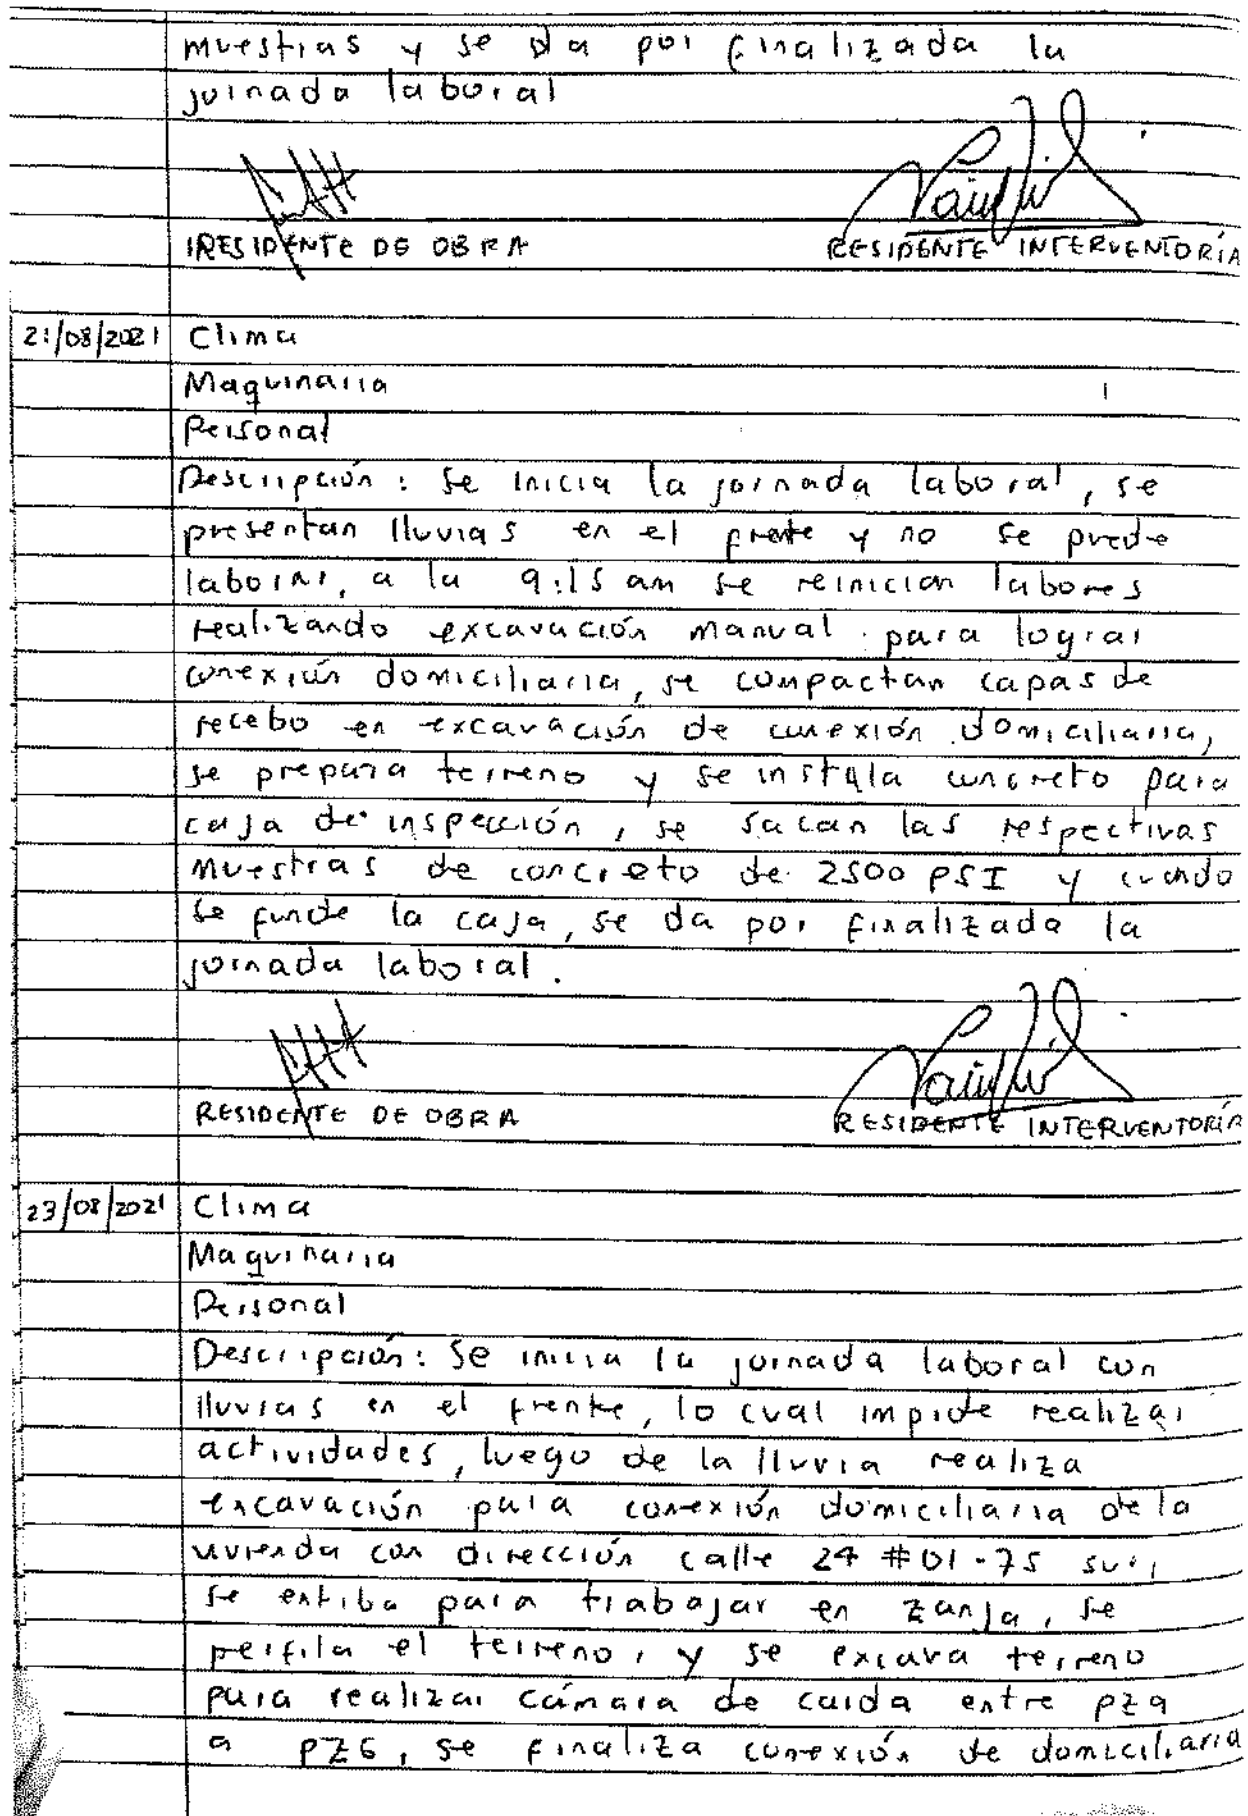 muestras y se da por finalizada la
jornada laboral
RESIDENTE DE OBRA RESIDENTE INTERVENTORÍA
21/08/2021 Clima
Maquinaria
Personal
Descripción: Se inicia la jornada laboral, se
presentan lluvias en el frente y no se puede
laborar, a la 9:15 am se reinician labores
realizando excavación manual para lograr
conexión domiciliaria, se compactan capas de
recebo en excavación de conexión domiciliaria,
se prepara terreno y se instala concreto para
caja de inspección, se sacan las respectivas
muestras de concreto de 2500 PSI y cuando
se funde la caja, se da por finalizada la
jornada laboral.
RESIDENTE DE OBRA RESIDENTE INTERVENTORÍA
23/08/2021 Clima
Maquinaria
Personal
Descripción: Se inicia la jornada laboral con
lluvias en el frente, lo cual impide realizar
actividades, luego de la lluvia realiza
excavación para conexión domiciliaria de la
vivienda con dirección calle 24 #01-75 sur,
se entiba para trabajar en zanja, se
perfila el terreno, y se excava terreno
para realizar cámara de caida entre pz9
a PZ6, se finaliza conexión de domiciliaria